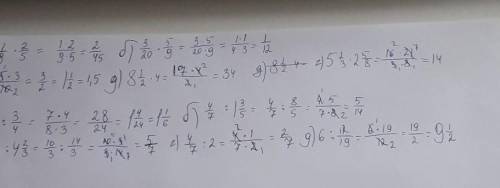 1/9 · 2/5 = 1·2/9·5 = 2/45 б) 3/20 · 5/9 = 3·5/20·9 = 1·1/4·3 = 1/12
5·3/10₂ = 3/2 = 1 1/2 = 1,5 д) 8 1/2 · 4 = 17·4²/2₁ = 34 2) 5 1/3 · 2 5/8 = 16²·21⁷/3₁·8₁ = 14
: 3/4 = 7·4/8·3 = 28/24 = 1 4/24 = 1 1/6 б) 4/7 : 1 3/5 = 4/7 : 8/5 = 4·5/7·8₂ = 5/14
: 4 2/3 = 10/3 : 14/3 = 10·3¹/3₁·14₇ = 5/7 2) 4/7 : 2 = 4²·1/7·2₁ = 2/7 д) 6 : 12/19 = 6¹·19/12₂ = 19/2 = 9 1/2